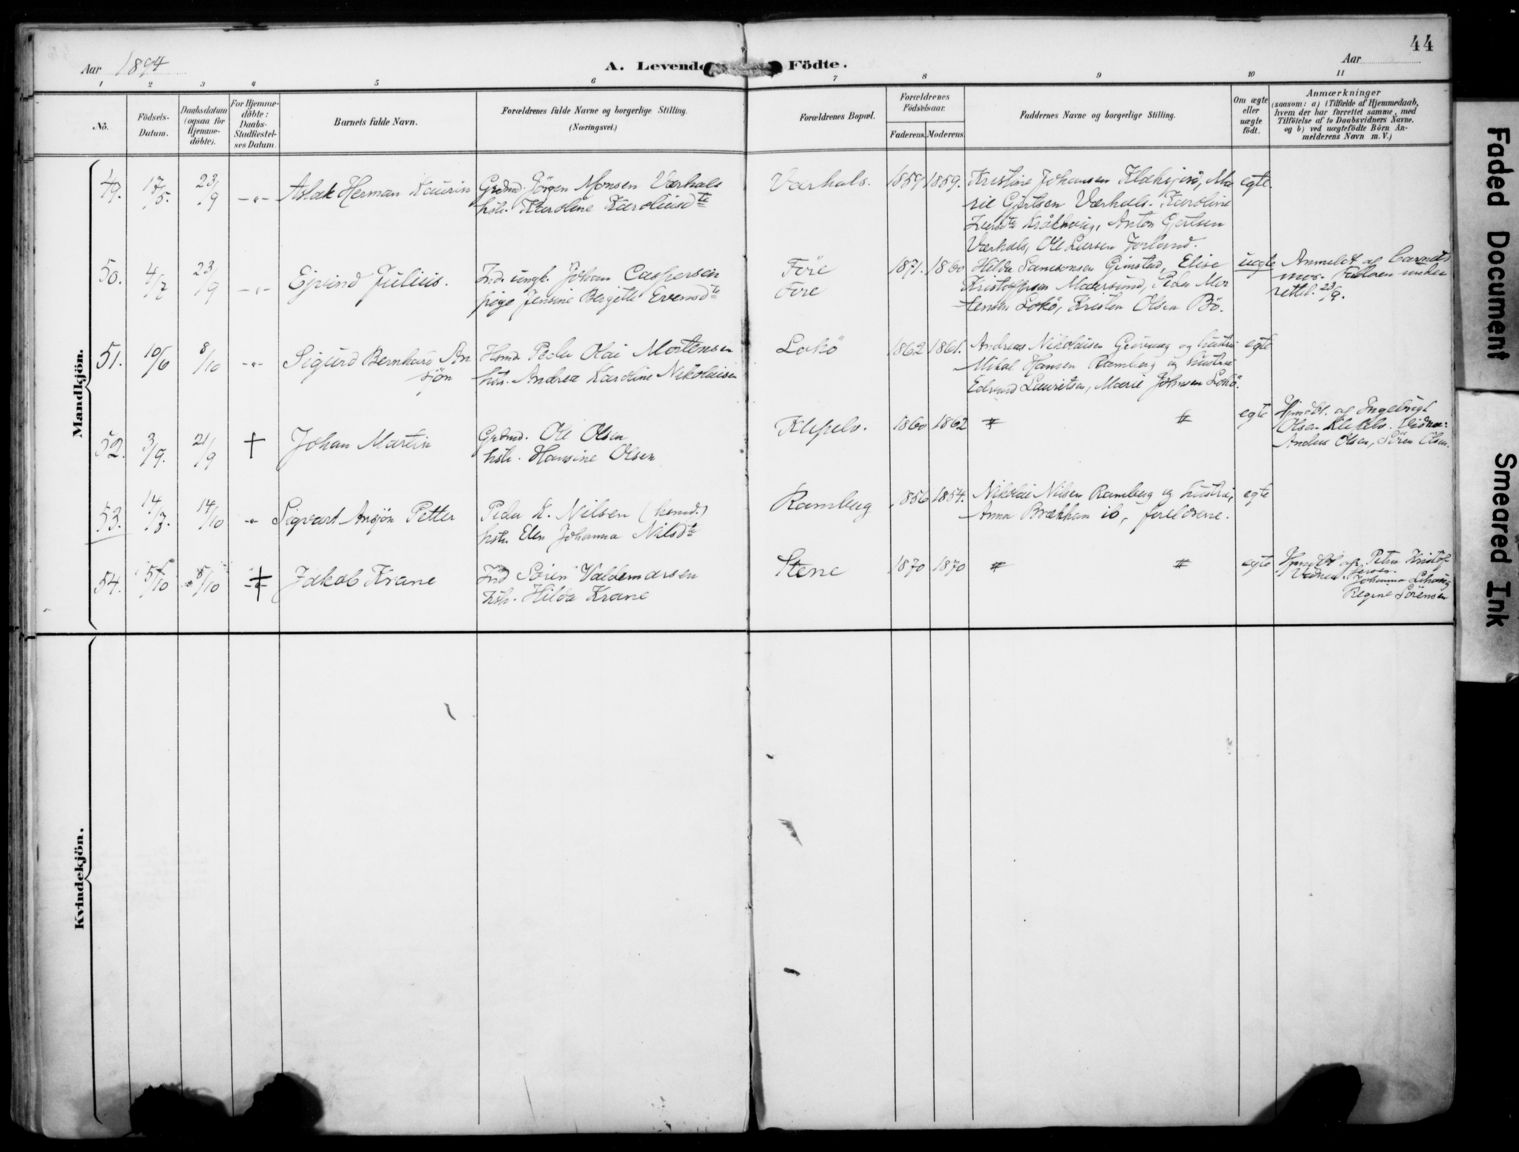 44
Aar 1894
A. Levende Födte.
Aar
1 2 3 4 5 6 7 8 9 10 11
No.
Födsels-Datum.
Daabsdatum (ogsaa for Hjemme-döbte).
For Hjemme-döbte: Daabs-Stadfæstel-ses Datum.
Barnets fulde Navn.
Forældrenes fulde Navne og borgerlige Stilling.
(Næringsvei.)
Forældrenes Bopæl.
Forældrenes Födselsaar.
Faderens. Moderens.
Faddernes Navne og borgerlige Stilling.
Om ægte eller uægte födt.
Anmærkninger
(saasom: a) i Tilfælde af Hjemmedaab, hvem der har forrettet samme, med Tilföielse af to Daabsvidners Navne, og b) ved uægtefödte Börn An-melderens Navn m. V.)
Mandkjön.
49. 17/5. 23/9 -"- Aslak Herman Kaurin
Grdmd. Jörgen Monsen Værhals
hstr. Karoline Karoliusdtr
Værhals. 1859 1859.
Kristine Johansen
rie Gjertsen Værhals. Karoline
Anton Gjertsen
Værhals, Ole Larsen
egte.
50. 4/7 23/9 -"- Ejvind Julius.
Ind. ungk. Johan Caspersen
pige Jensine Bergitte Evensdtr
Före
Före
1871. 1860
Hilda Samsonsen Gimstad, Elise
Kristoffersen Peder Mor
tensen Lokö, Kristen Olsen Bö.
uegte
Anmeldt af barnets
mor. Faderen under
rettet 23/9.
51. 10/6 8/10 -"- Sigurd Bernhard An
sjön
Hsmd. Peder Olai Mortensen
hstr. Andrea Karoline Nikolaisen
Lokö 1862 1861.
Andreas Nikolaisen og hustru
Mikal Hansen Ramberg og hustru
Edvard Lauritsen, Marie Johnsen Lokö.
egte
52. 3/9. 21/9 † Johan Martin
Grdmd. Ole Olsen
hstr. Hansine Olsen
1860 1862
# #
egte
Hjmdbt. af Ingebrigt
Olsen
Anders Olsen, Sören Olsen.
53. 14/8. 14/10 -"- Sigvart Ansjön Petter
Peder K. Nilsen (hsmd.)
hstr. Elen Johanna Nilsdtr
Ramberg 1856 1854.
Nikolai Nilsen Ramberg og hustru,
Anna Brækkan ib, forældrene.
egte
54. 5/10 5/10 † Jakob Krane
Ind Sören Valdemarsen
hstr. Hilda Krane
Stene 1870 1870
# #
egte
Hjmdbt af Petra Kristof
fersen. Johanna
Regine Sörensen
Kvindekjön.
Faded Document
Smeared Ink